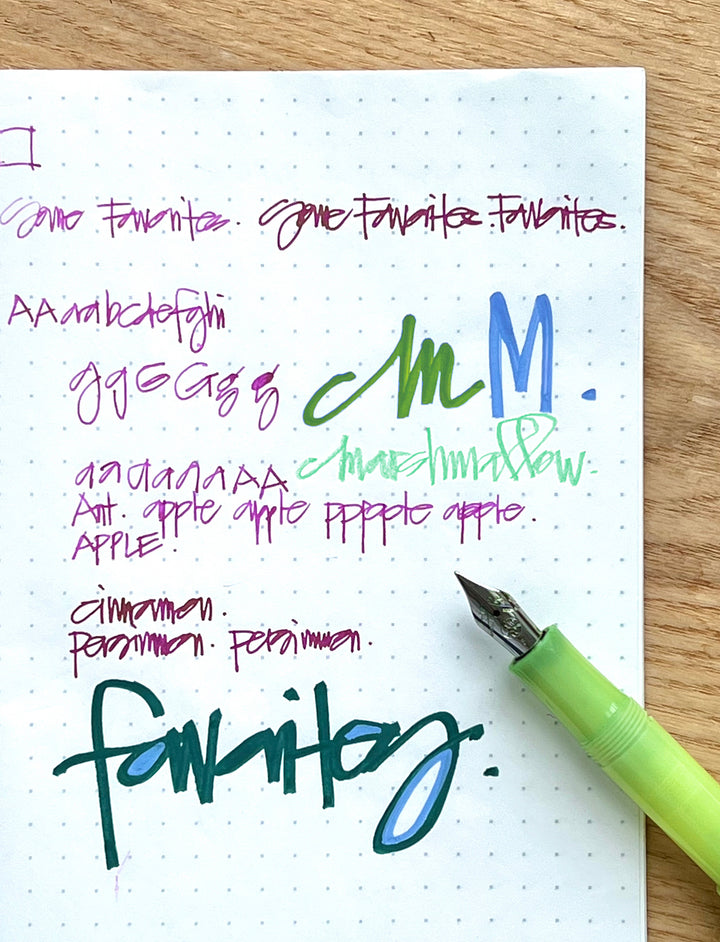 Some Favorites. Some Favorites. Favorites.
AAaabcdefghi
ggGGgg
m M.
marshmallow.
aaaaaaAA
Ant. apple apple ppppple apple.
APPLE.
cinnamon.
persimmon. persimmon.
favorites.